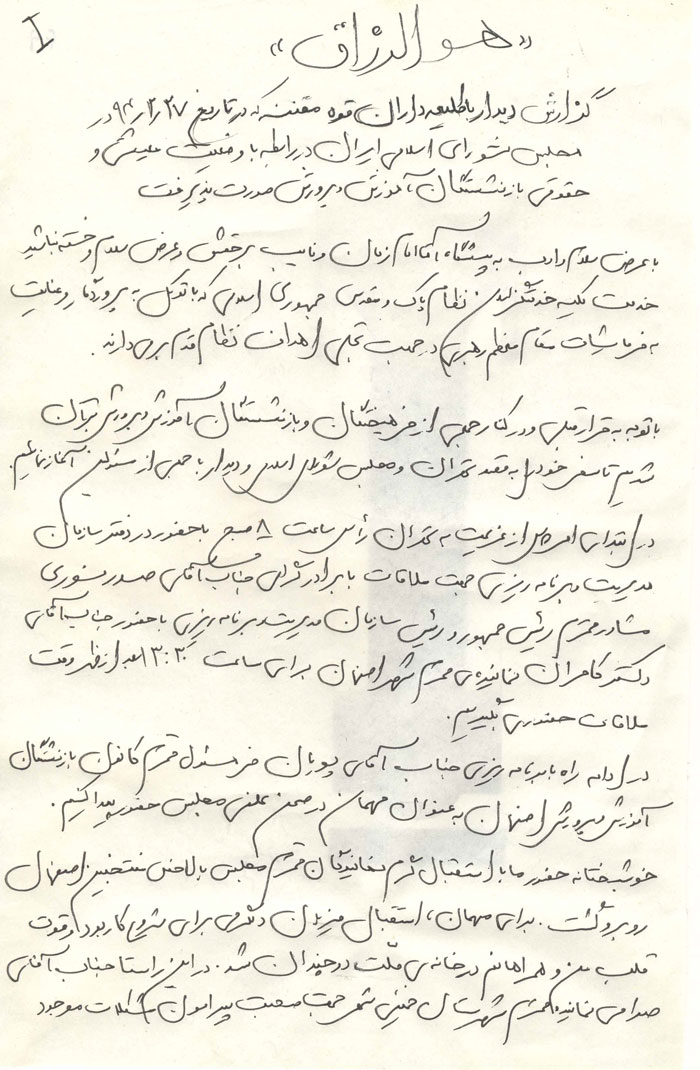 I
« هو الرزاق »
گزارش دیدار با طلیعه داران قوه مقننه که در تاریخ ۲۷/۳/۹۴ در
مجلس شورای اسلامی ایران در رابطه با وضعیت معیشتی و
حقوقی بازنشستگان آموزش و پرورش صورت پذیرفت
با عرض سلام و ادب به پیشگاه آقا امام زمان و نایب برحقش و عرض سلام و خسته نباشید
خدمت کلیه خدمتگزاران نظام پاک و مقدس جمهوری اسلامی که با توکل به پروردگار و عنایت
به فرمایشات مقام معظم رهبری در جهت تجلی اهداف نظام قدم برمی دارند.
با توجه به قرار قبلی و در کنار جمعی از فرهیختگان و بازنشستگان آموزش و پرورش بر آن
شدیم تا سفر خود را به مقصد تهران و مجلس شورای اسلامی و دیدار با جمعی از مسئولین آغاز نمائیم.
در ابتدای امر پس از عزیمت به تهران رأس ساعت ۸ صبح با حضور در دفتر سازمان
مدیریت و برنامه ریزی جهت ملاقات با برادر گرامی جناب آقای
مشاور محترم رئیس جمهور و رئیس سازمان مدیریت و برنامه ریزی با حضور جناب آقای
دکتر کامران نماینده ی محترم شهر اصفهان برای ساعت ۱۳:۳۰ بعد از ظهر وقت
ملاقات حضوری بگیریم.
در ادامه راه با برنامه ریزی جناب آقای پوریان فر مسئول محترم کانون بازنشستگان
آموزش و پرورش اصفهان به عنوان مهمان در صحن علنی مجلس حضور پیدا کنیم.
خوشبختانه حضور ما با استقبال گرم نمایندگان محترم مجلس بالاخص منتخبین اصفهان
روبرو گشت. برای مهمان، استقبال میزبان دلگرمی برای شروع کار بود و قوت
قلب من و همراهانم در خانه ی ملت دو چندان شد. در این راستا جناب آقای
نماینده محترم شهرستان خمینی شهر جهت صحبت پیرامون مشکلات موجود